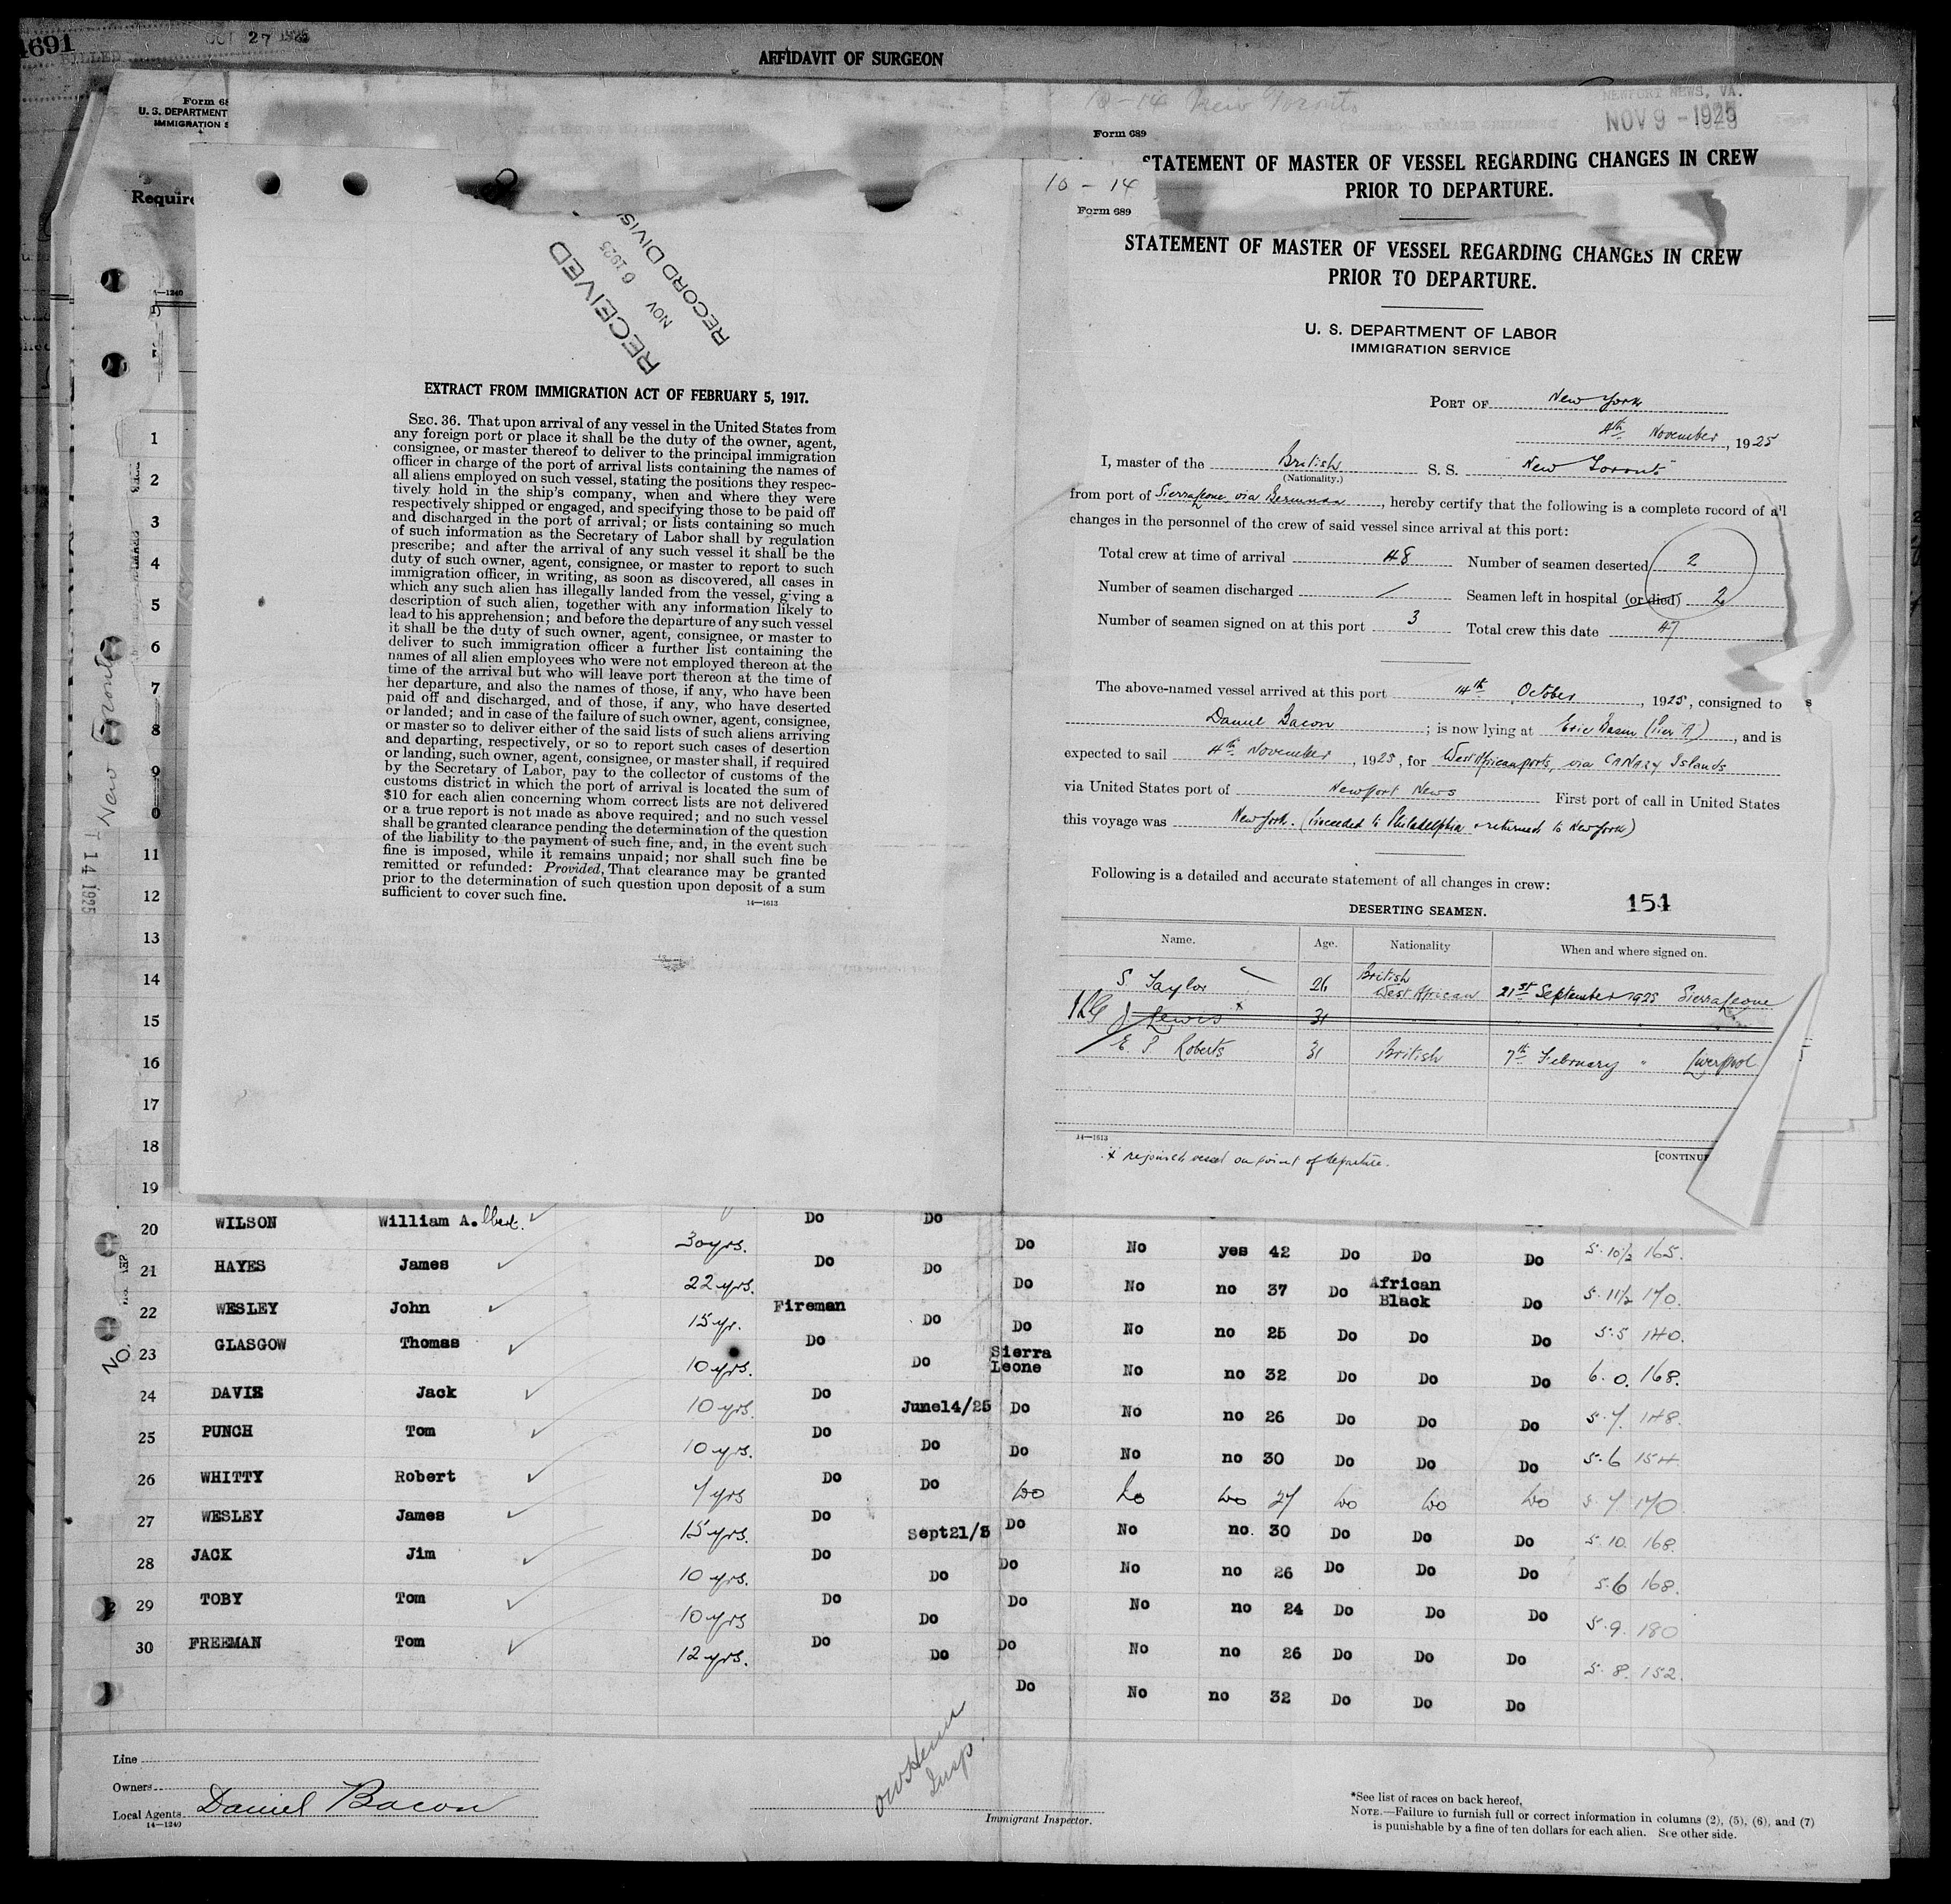 1691
FILLED
OCT 27 1925
AFFIDAVIT OF SURGEON
Form 68
U. S. DEPARTMENT
IMMIGRATION S
Require
10-14 New Toronto
NEWPORT NEWS, VA.
NOV 9 - 1925
Form 689
STATEMENT OF MASTER OF VESSEL REGARDING CHANGES IN CREW
PRIOR TO DEPARTURE.
10 - 14
Form 689
STATEMENT OF MASTER OF VESSEL REGARDING CHANGES IN CREW
PRIOR TO DEPARTURE.
U. S. DEPARTMENT OF LABOR
IMMIGRATION SERVICE
PORT OF New York
4th November, 1925
I, master of the British S. S. "New Toronto"
(Nationality.)
from port of Sierra Leone via Bermuda, hereby certify that the following is a complete record of all
changes in the personnel of the crew of said vessel since arrival at this port:
Total crew at time of arrival 48 Number of seamen deserted 2
Number of seamen discharged / Seamen left in hospital (or died) 2
Number of seamen signed on at this port 3 Total crew this date 47
The above-named vessel arrived at this port 14th October, 1925, consigned to
Daniel Bacon; is now lying at Erie Basin (Pier A), and is
expected to sail 4th November, 1925, for West African ports, via CANARY Islands
via United States port of Newport News First port of call in United States
this voyage was New York. (Proceeded to Philadelphia & returned to New York)
Following is a detailed and accurate statement of all changes in crew:
DESERTING SEAMEN.
154
Name. Age. Nationality When and where signed on.
S Taylor 26 British West African 21st September 1925 Sierra Leone
J Lewis x 31 " "
E. P. Roberts 31 British 7th February " Liverpool
14—1613
x rejoined vessel on point of departure.
[CONTINU
RECEIVED
NOV 6 1925
RECORD DIVIS
EXTRACT FROM IMMIGRATION ACT OF FEBRUARY 5, 1917.
SEC. 36. That upon arrival of any vessel in the United States from
any foreign port or place it shall be the duty of the owner, agent,
consignee, or master thereof to deliver to the principal immigration
officer in charge of the port of arrival lists containing the names of
all aliens employed on such vessel, stating the positions they respec-
tively hold in the ship's company, when and where they were
respectively shipped or engaged, and specifying those to be paid off
and discharged in the port of arrival; or lists containing so much
of such information as the Secretary of Labor shall by regulation
prescribe; and after the arrival of any such vessel it shall be the
duty of such owner, agent, consignee, or master to report to such
immigration officer, in writing, as soon as discovered, all cases in
which any such alien has illegally landed from the vessel, giving a
description of such alien, together with any information likely to
lead to his apprehension; and before the departure of any such vessel
it shall be the duty of such owner, agent, consignee, or master to
deliver to such immigration officer a further list containing the
names of all alien employees who were not employed thereon at the
time of the arrival but who will leave port thereon at the time of
her departure, and also the names of those, if any, who have been
paid off and discharged, and of those, if any, who have deserted
or landed; and in case of the failure of such owner, agent, consignee,
or master so to deliver either of the said lists of such aliens arriving
and departing, respectively, or so to report such cases of desertion
or landing, such owner, agent, consignee, or master shall, if required
by the Secretary of Labor, pay to the collector of customs of the
customs district in which the port of arrival is located the sum of
$10 for each alien concerning whom correct lists are not delivered
or a true report is not made as above required; and no such vessel
shall be granted clearance pending the determination of the question
of the liability to the payment of such fine, and, in the event such
fine is imposed, while it remains unpaid; nor shall such fine be
remitted or refunded: Provided, That clearance may be granted
prior to the determination of such question upon deposit of a sum
sufficient to cover such fine.
14—1613
New Toronto
T 14 1925
1
2
3
4
5
6
7
8
9
0
11
12
13
14
15
16
17
18
19
20 WILSON William A.lbert. 30 yrs. Do Do Do No yes 42 Do Do Do 5. 10 1/2 165.
21 HAYES James 22 yrs. Do Do Do No no 37 Do African Black Do 5. 11 1/2 170.
22 WESLEY John 15 yr. Fireman Do Do No no 25 Do Do Do 5.5 140.
23 GLASGOW Thomas 10 yrs. Do Do Sierra Leone No no 32 Do Do Do 6. 0. 168.
24 DAVIS Jack 10 yrs. Do June14/25 Do No no 26 Do Do Do 5.7. 148.
25 PUNCH Tom 10 yrs. Do Do Do No no 30 Do Do Do 5.6 154.
26 WHITTY Robert 7 yrs Do Do Do Do Do 27 Do Do Do 5.7. 170
27 WESLEY James 15 yrs. Do Sept21/5 Do No no. 30 Do Do Do 5.10. 168.
28 JACK Jim 10 yrs. Do Do Do No no 26 Do Do Do 5.6 168.
29 TOBY Tom 10 yrs Do Do Do No no 24 Do Do Do 5.9. 180
30 FREEMAN Tom 12 yrs. Do Do Do No no 26 Do Do Do 5.8. 152.
Do No no 32 Do Do Do
Line
Owners
Local Agents Daniel Bacon
14—1240
Insp.
Immigrant Inspector.
*See list of races on back hereof,
NOTE.—Failure to furnish full or correct information in columns (2), (5), (6), and (7)
is punishable by a fine of ten dollars for each alien. See other side.